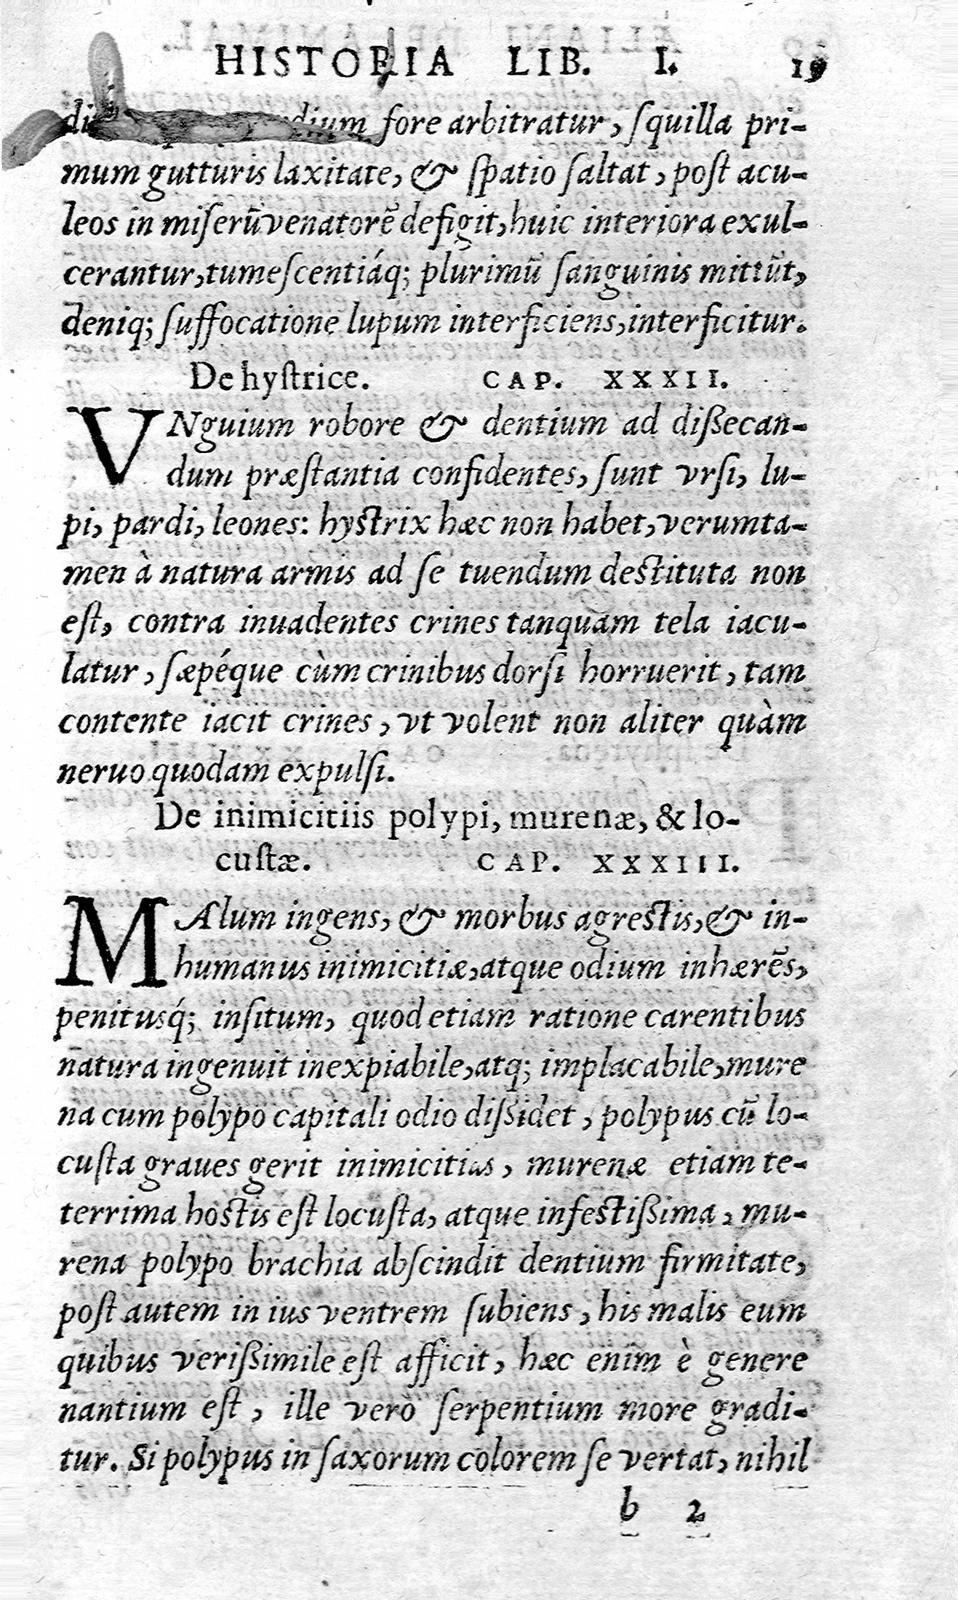 HISTORIA LIB. I. 19
dium fore arbitratur, ſquilla pri-
mum gutturis laxitate, & ſpatio ſaltat, poſt acu-
leos in miſerũ venatorẽ defigit, huic interiora exul-
cerantur, tumeſcentiáq; plurimũ ſanguinis mittũt,
deniq; ſuffocatione lupum interficiens, interficitur.
De hyſtrice. CAP. XXXII.
VNguium robore & dentium ad dißecan-
dum præſtantia confidentes, ſunt vrſi, lu-
pi, pardi, leones: hyſtrix hæc non habet, verumta-
men à natura armis ad ſe tuendum deſtituta non
eſt, contra inuadentes crines tanquam tela iacu-
latur, ſæpéque cùm crinibus dorſi horruerit, tam
contente iacit crines, vt volent non aliter quàm
neruo quodam expulſi.
De inimicitiis polypi, murenæ, & lo-
cuſtæ. CAP. XXXIII.
MAlum ingens, & morbus agreſtis, & in-
humanus inimicitiæ, atque odium inhærẽs,
penituſq́; inſitum, quod etiam ratione carentibus
natura ingenuit inexpiabile, atq; implacabile, mure
na cum polypo capitali odio diſsidet, polypus cũ lo-
cuſta graues gerit inimicitias, murenæ etiam te-
terrima hoſtis eſt locuſta, atque infeſtißima, mu-
rena polypo brachia abſcindit dentium firmitate,
poſt autem in ius ventrem ſubiens, his malis eum
quibus verißimile eſt afficit, hæc enim è genere
nantium eſt, ille verò ſerpentium more gradi-
tur. Si polypus in ſaxorum colorem ſe vertat, nihil
b 2